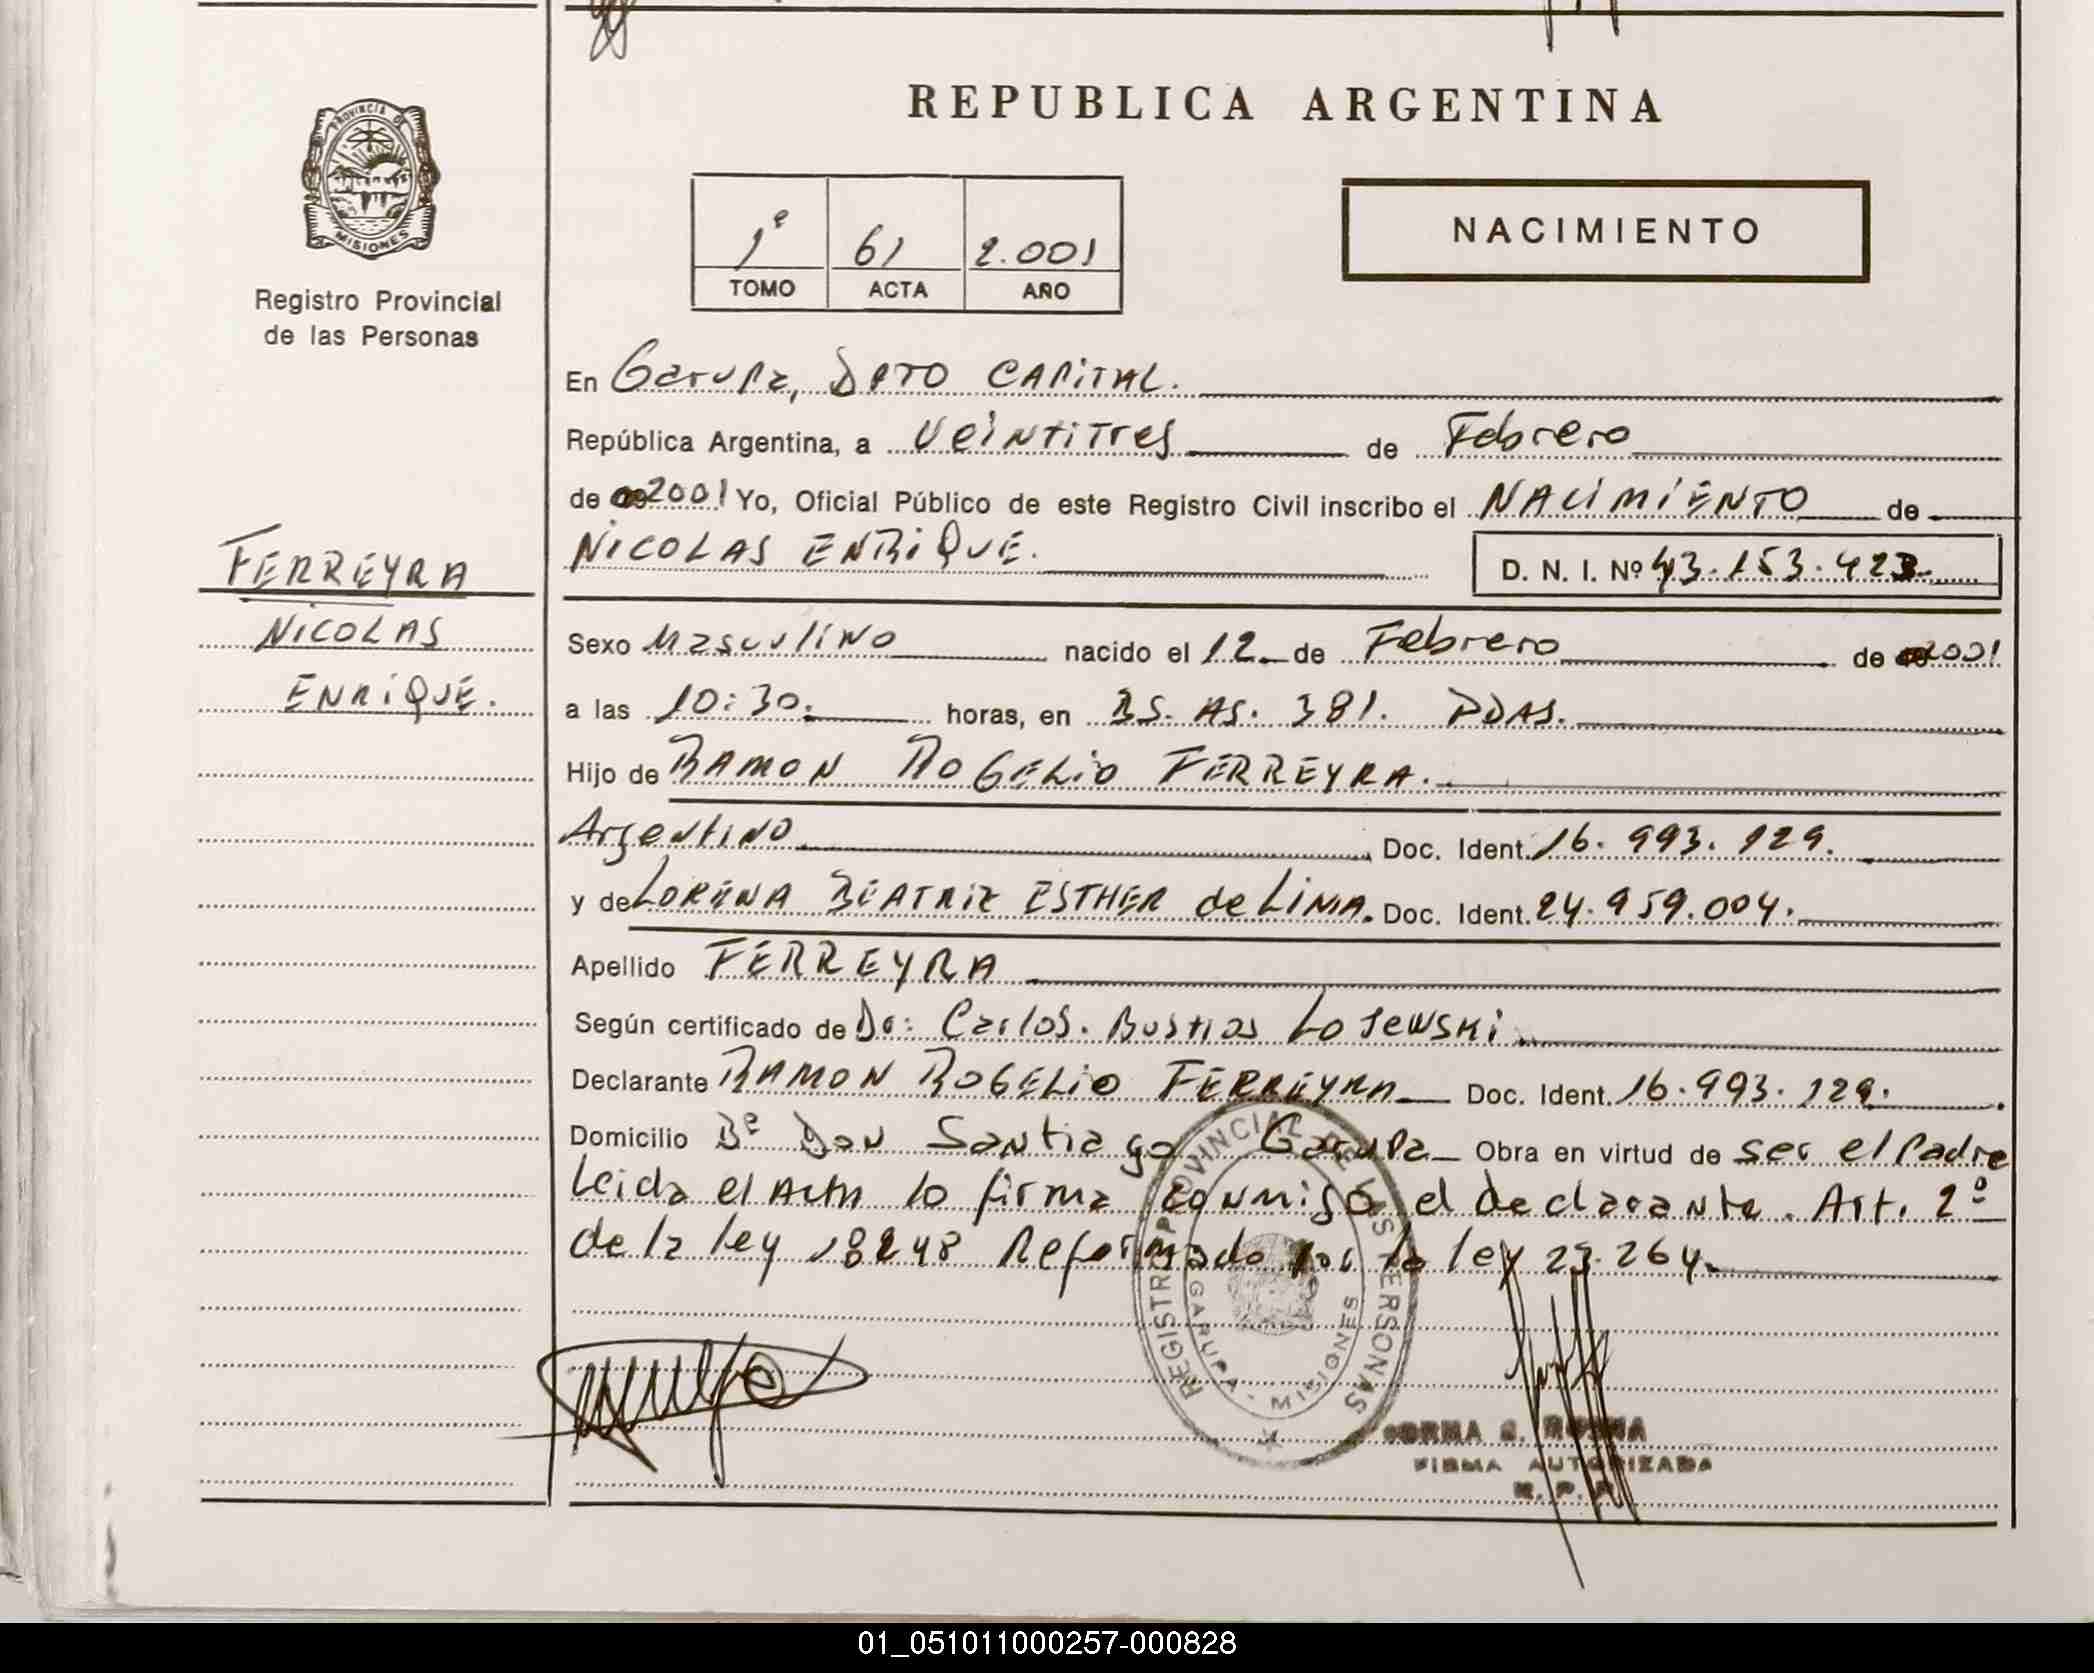 REPUBLICA ARGENTINA
PROVINCIA DE
MISIONES
Registro Provincial
de las Personas
1º 61 2.001
TOMO ACTA AÑO
NACIMIENTO
En Garupa, Dpto CAPITAL.
República Argentina, a Veintitres de Febrero
de 2001 Yo, Oficial Público de este Registro Civil inscribo el NACIMIENTO de
NICOLAS ENRIQUE. D. N. I. Nº 43.153.423.
FERREYRA
NICOLAS
ENRIQUE.
Sexo Masculino nacido el 12 de Febrero de 2001
a las 10:30. horas, en BS. AS. 381. PDAS.
Hijo de RAMON ROGELIO FERREYRA.
Argentino Doc. Ident. 16.993.129.
y de LORENA BEATRIZ ESTHER de LIMA. Doc. Ident. 24.959.004.
Apellido FERREYRA
Según certificado de Dr: Carlos. Bustios Lojewski.
Declarante RAMON ROGELIO FERREYRA Doc. Ident. 16.993.129.
Domicilio Bº Don Santiago Garupa Obra en virtud de ser el Padre
Leida el Acta lo firma conmigo el declarante. Art. 2º
de la ley 18248 Reformado por la ley 23.264.
REGISTRO PROVINCIAL DE LAS PERSONAS
GARUPA - MISIONES
FIRMA AUTORIZADA
R. P. P.
01_051011000257-000828